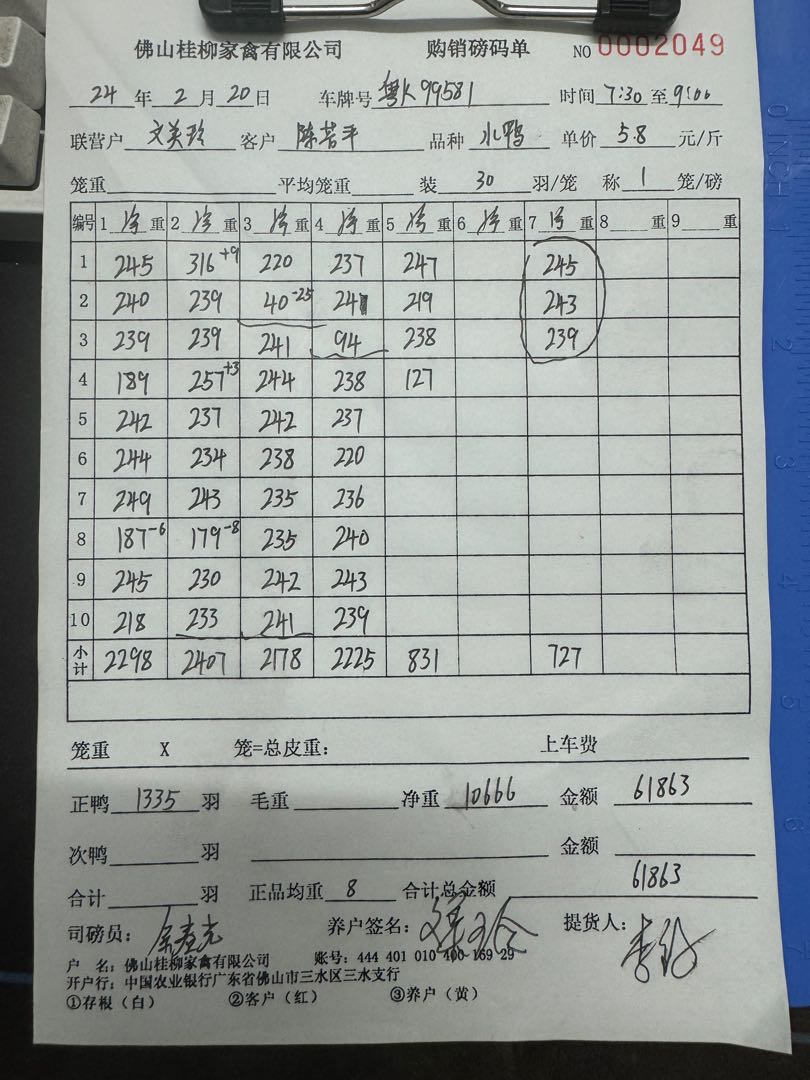 佛山桂柳家禽有限公司 购销磅码单 NO 0002049
24 年 2 月 20 日 车牌号 粤K99581 时间 7:30 至 9:00
联营户 文美玲 客户 陈若平 品种 水鸭 单价 5.8 元/斤
笼重 平均笼重 装 30 羽/笼 称 1 笼/磅
编号 1 净 重 2 净 重 3 净 重 4 净 重 5 净 重 6 净 重 7 净 重 8 重 9 重
1 245 316+9 220 237 247 245
2 240 239 40-25 241 219 243
3 239 239 241 94 238 239
4 189 257+3 244 238 127
5 242 237 242 237
6 244 234 238 220
7 249 243 235 236
8 187-6 179-8 235 240
9 245 230 242 243
10 218 233 241 239
小计 2298 2407 2178 2225 831 727
笼重 X 笼=总皮重: 上车费
正鸭 1335 羽 毛重 净重 10666 金额 61863
次鸭 羽 金额
合计 羽 正品均重 8 合计总金额 61863
司磅员: 养户签名: 提货人:
户 名: 佛山桂柳家禽有限公司 账号: 444 401 010 400 169 29
开户行: 中国农业银行广东省佛山市三水区三水支行
①存根(白) ②客户(红) ③养户(黄)
0 INCH 1 2 3 4 5